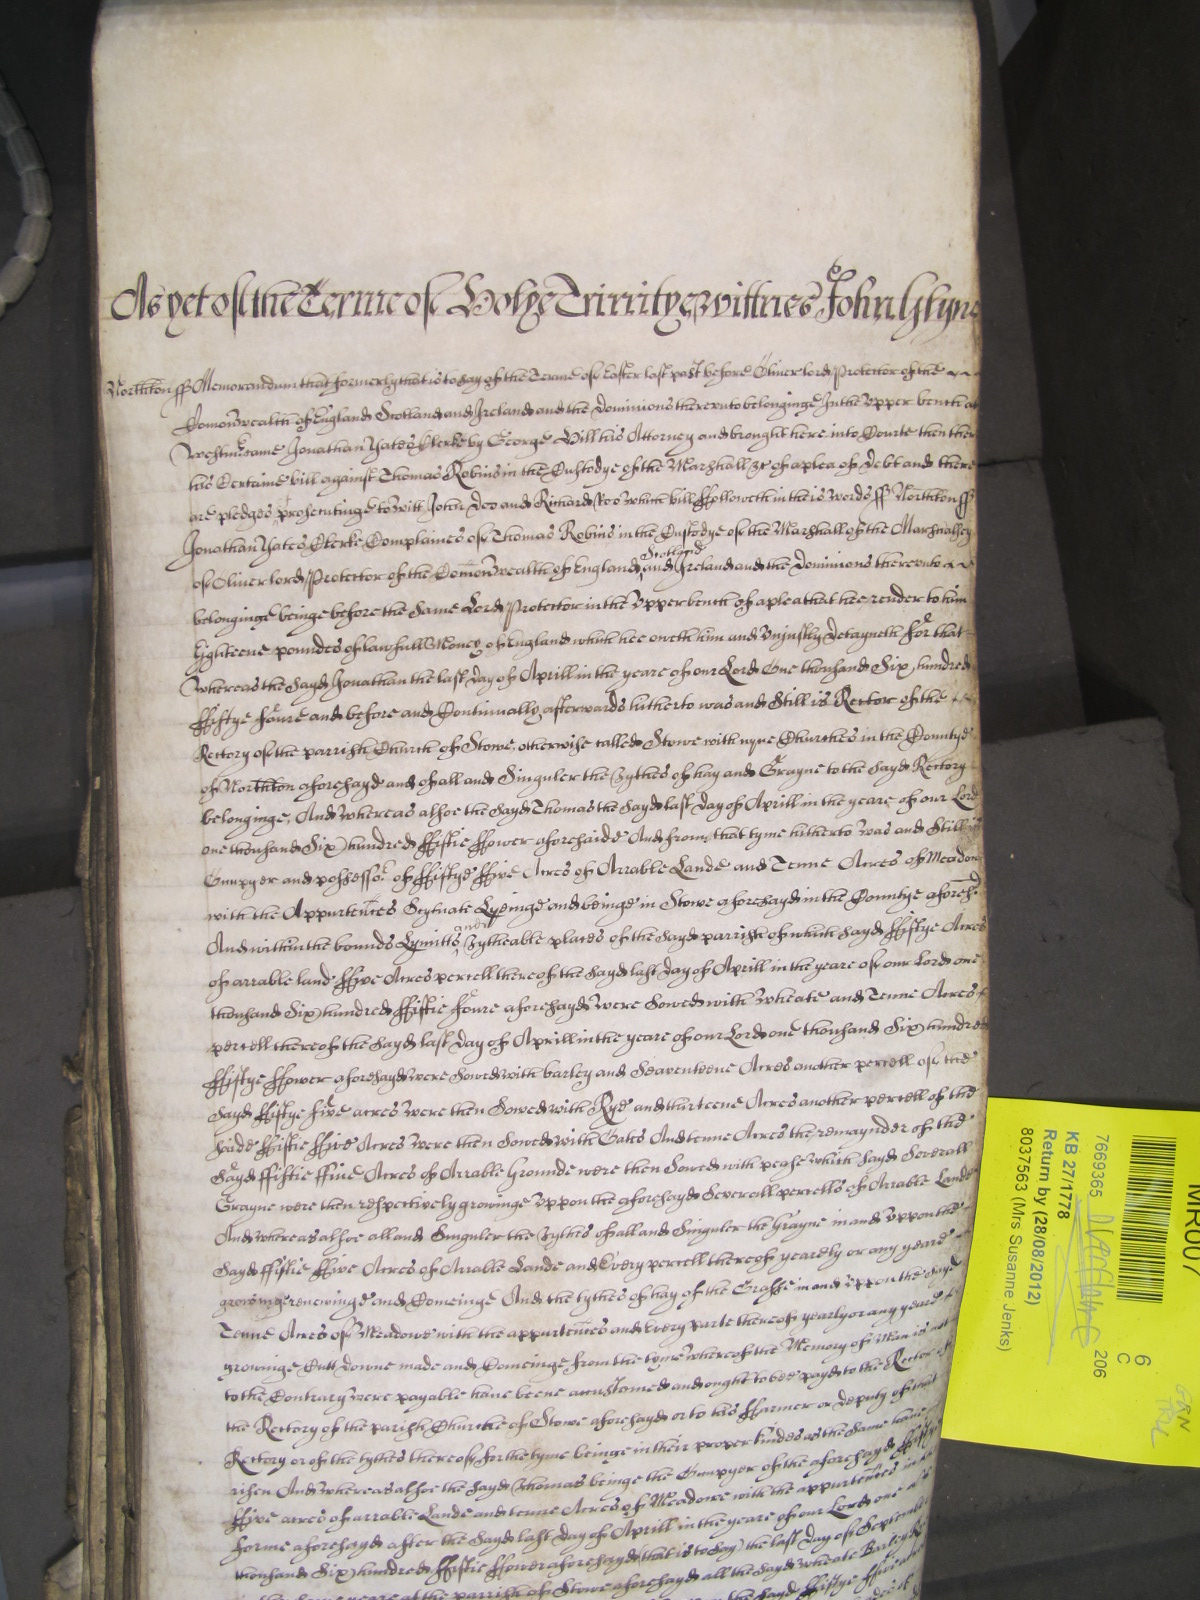 As yet of the Terme of Holye Trinitye wittnes John Glynn
Northton ss Memorandum that formerly that is to say of the Terme of Easter last past before Oliver lord Protector of the
Comonwealth of England Scotland and Ireland and the Dominions thereunto belonginge In the Upper bench at
Westmr came Jonathan Yates Clerke by George Hill his Attorney and brought here into Courte then there
his Certaine bill against Thomas Robins in the Custodye of the Marshall &c of a plea of Debt and there
are pledges prosecutinge to witt John Doo and Richard Roo which bill ffolloweth in theis words ss Northton ss
Jonathan Yates Clerke Complaines of Thomas Robins in the Custodye of the Marshall of the Marshallsey
of Oliver lord Protector of the Comonwealth of England Scotland and Ireland and the Dominions thereunto
belonginge beinge before the Same Lord Protector in the Upper bench of a plea that hee render to him
Eighteene poundes of lawfull Money of England which hee oweth him and Unjustly Detayneth for that
Whereas the Sayd Jonathan the last day of Aprill in the yeare of our Lord One thousand Six hundred
ffiftye foure and before and Continually afterwards hitherto was and Still is Rector of the
Rectory of the parrish Church of Stowe otherwise called Stowe with nyne Churches in the Countye
of Northton aforesayd and of all and Singuler the Tythes of hay and Grayne to the Sayd Rectory
belonginge, And whereas alsoe the Sayd Thomas the Sayd last Day of Aprill in the yeare of our Lord
one thousand Six hundred ffiftie ffower aforesaide And from that tyme hitherto was and Still is
Occupyer and possessor of ffiftye ffive Acres of Arrable Lande and Tenne Acres of Meadow
with the Appurtences Scytuate Lyeinge and beinge in Stowe aforesayd in the Countye aforesd
And within the bounds Lymitts and Tytheable places of the Sayd parrish of which Sayd ffiftye Acres
of arrable land ffive Acres percell thereof the Sayd last Day of Aprill in the yeare of our Lord one
thousand Six hundred ffiftie foure aforesayd were Sowed with Wheate and Tenne Acres
percell thereof the Sayd last Day of Aprill in the yeare of our Lord one thousand Six hundred
ffiftye ffower aforesayd were Sowed with barley and Seaventeene Acres another percell of the
Sayd ffiftye five acres were then Sowed with Rye and thirteene Acres another percell of the
saide ffiftie ffive Acres were then Sowed with Oates And tenne Acres the remaynder of the
Sayd ffiftie ffive Acres of Arrable Grounde were then Sowed with pease which Sayd Severall
Grayne were then respectively growinge Uppon the aforesayd Severall percells of Arrable Lande
And whereas alsoe all and Singuler the Tythes of all and Singuler the Grayne in and Uppon the
Sayd ffiftie ffive Acres of Arrable Lande and Every percell thereof yearely or any yeare
growinge renewinge and Comeinge And the tythes of hay of the Grasse in and Uppon the Sayd
Tenne Acres of Meadowe with the appurtences and Every parte thereof yearly or any yeare
growinge Cutt downe made and Comeinge from the tyme whereof the Memory of Man is not
to the Contrary were payable have beene accustomed and ought to bee payd to the Rector of
the Rectory of the parish Church of Stowe aforesayd or to his ffarmer or deputy of that
Rectory or of the tythes thereof for the tyme beinge in their proper kindes as the Same have
risen And whereas alsoe the Sayd Thomas beinge the Occupyer of the aforesayd ffiftye
ffive acres of arrable Lande and tenne Acres of Meadowe with the appurtences in
forme aforesayd after the Sayd last Day of Aprill in the yeare of our Lord one
thousand Six hundred ffiftie ffower aforesayd (that is to Say) the last Day of September
yeare at the parrish of Stowe aforesayd all the Sayd Wheate Barley
the Sayd ffiftye ffive
MR007
6
C
7669365
206
KB 27/1778
Return by (28/08/2012)
8037563 (Mrs Susanne Jenks)